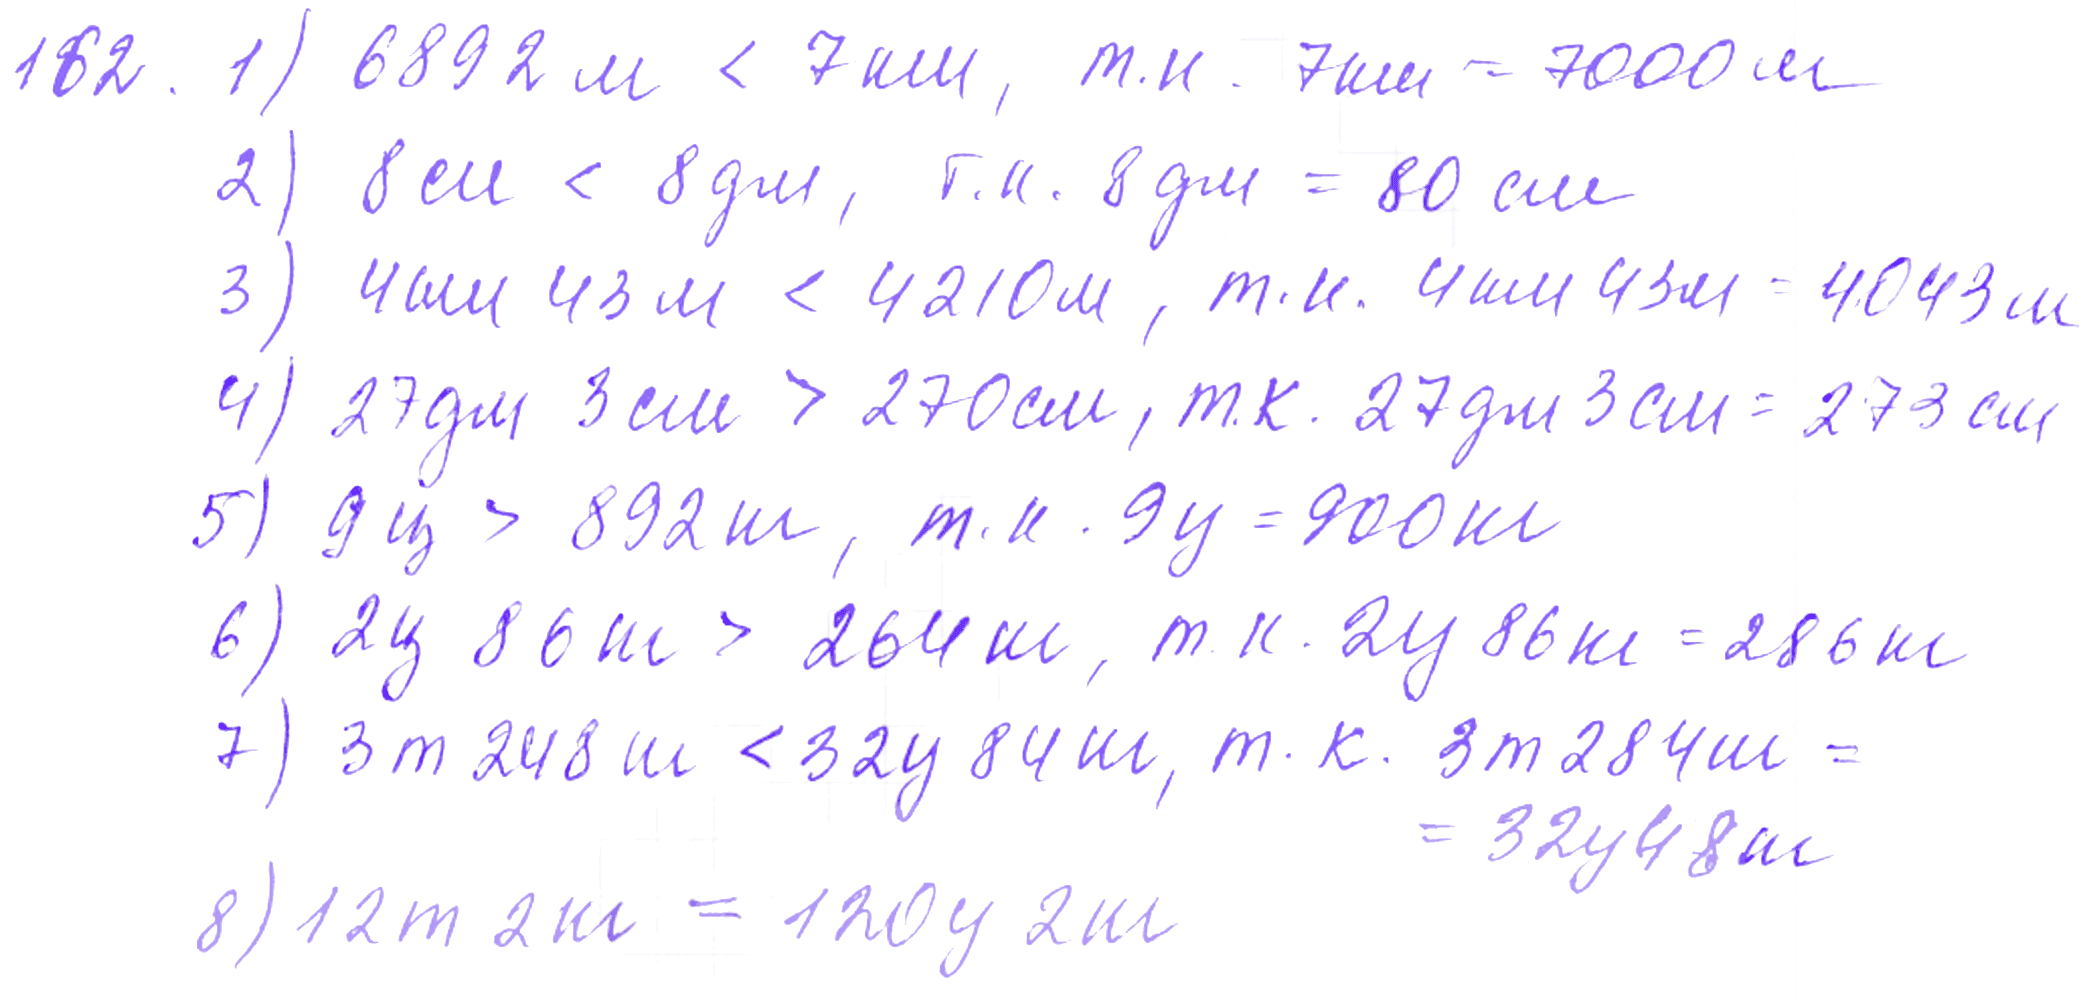 162. 1) 6892 м < 7 км, т.к. 7 км = 7000 м
2) 8 см < 8 дм, т.к. 8 дм = 80 см
3) 4 км 43 м < 4210 м, т.к. 4 км 43 м = 4043 м
4) 27 дм 3 см > 270 см, т.к. 27 дм 3 см = 273 см
5) 9 ц > 892 кг, т.к. 9 ц = 900 кг
6) 2 ц 86 кг > 264 кг, т.к. 2 ц 86 кг = 286 кг
7) 3 т 248 кг < 32 ц 84 кг, т.к. 3 т 284 кг =
= 32 ц 48 кг
8) 12 т 2 кг = 120 ц 2 кг